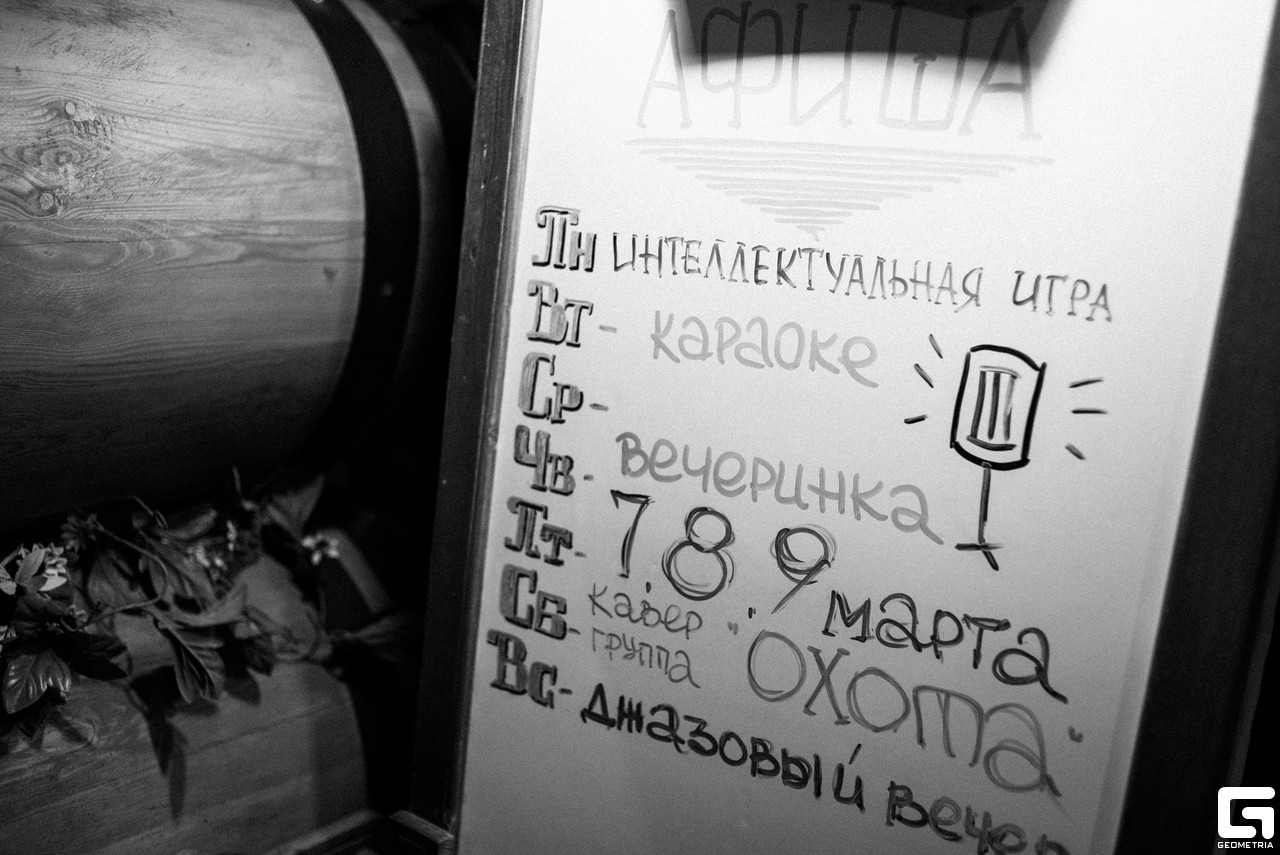 АФИША
Пн ИНТЕЛЛЕКТУАЛЬНАЯ ИГРА
Вт - караоке
Ср -
Чв - вечеринка
Пт - 7, 8, 9 марта
Сб - кавер группа "Охота"
Вс - джазовый вечер
GEOMETRIA